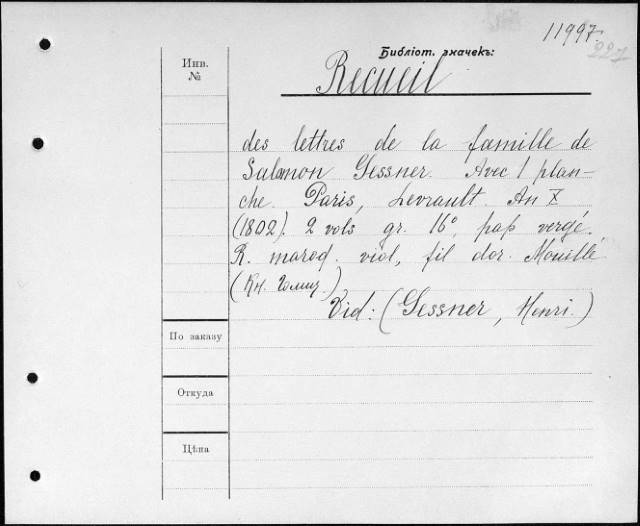 11997
227
Библіот. значекъ:
Инв.
№
Recueil
des lettres de la famille de
Salomon Gessner. Avec 1 plan-
che. Paris, Levrault. An X
(1802). 2 vols gr. 16°, pap vergé.
R. maroq. viol, fil dor. Mouillé
(Кн. Голиц.)
Vid: (Gessner, Henri.)
По заказу
Откуда
Цѣна